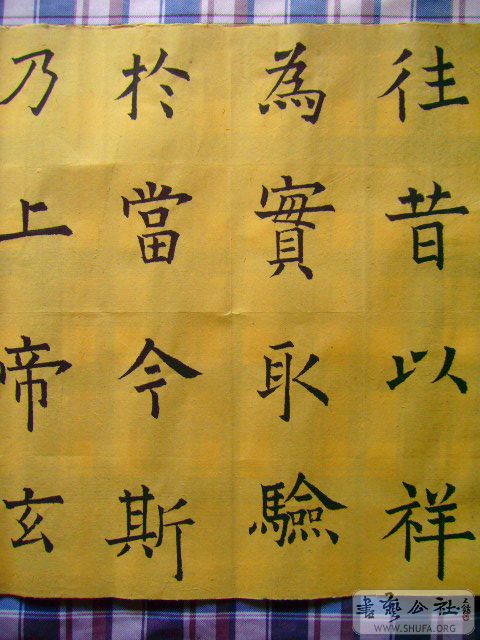 往昔以祥
為實取驗
於當今斯
乃上帝玄
書藝公社
WWW.SHUFA.ORG